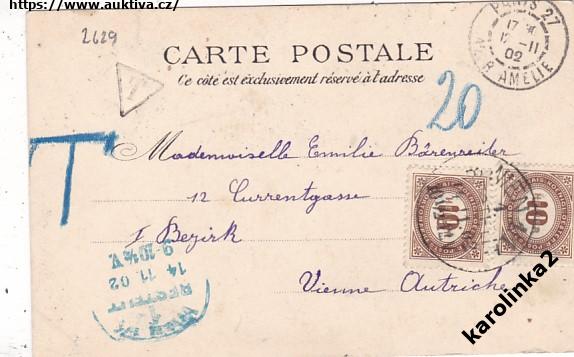 https://www.auktiva.cz/
2629
CARTE POSTALE
Ce côté est exclusivement réservé à l'adresse
PARIS 27
17
12 -11
02
R. AMELIE
T
20
T
Mademoiselle Emilie Bärenreiter
12 Currentgasse
I Bezirk
Vienne Autriche
10
10
9-10½V.
14 11 02
BESTELLT
karolinka2